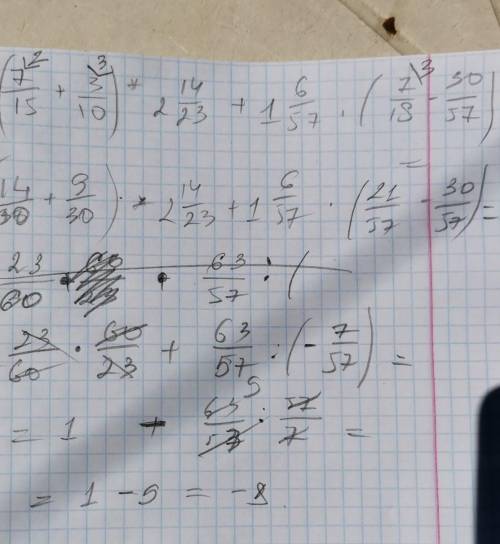 (7/15² + 3/10³) * 2 14/23 + 1 6/57 · (7/18³ - 30/57) =
14/30 + 9/30) · * 2 14/23 + 1 6/57 · (21/57 - 30/57) =
23/60 · 63/57 : (
23/60 · 60/23 + 63/57 : (- 7/57) =
= 1 + 63/57 5 : 57/7 =
= 1 - 5 = -8